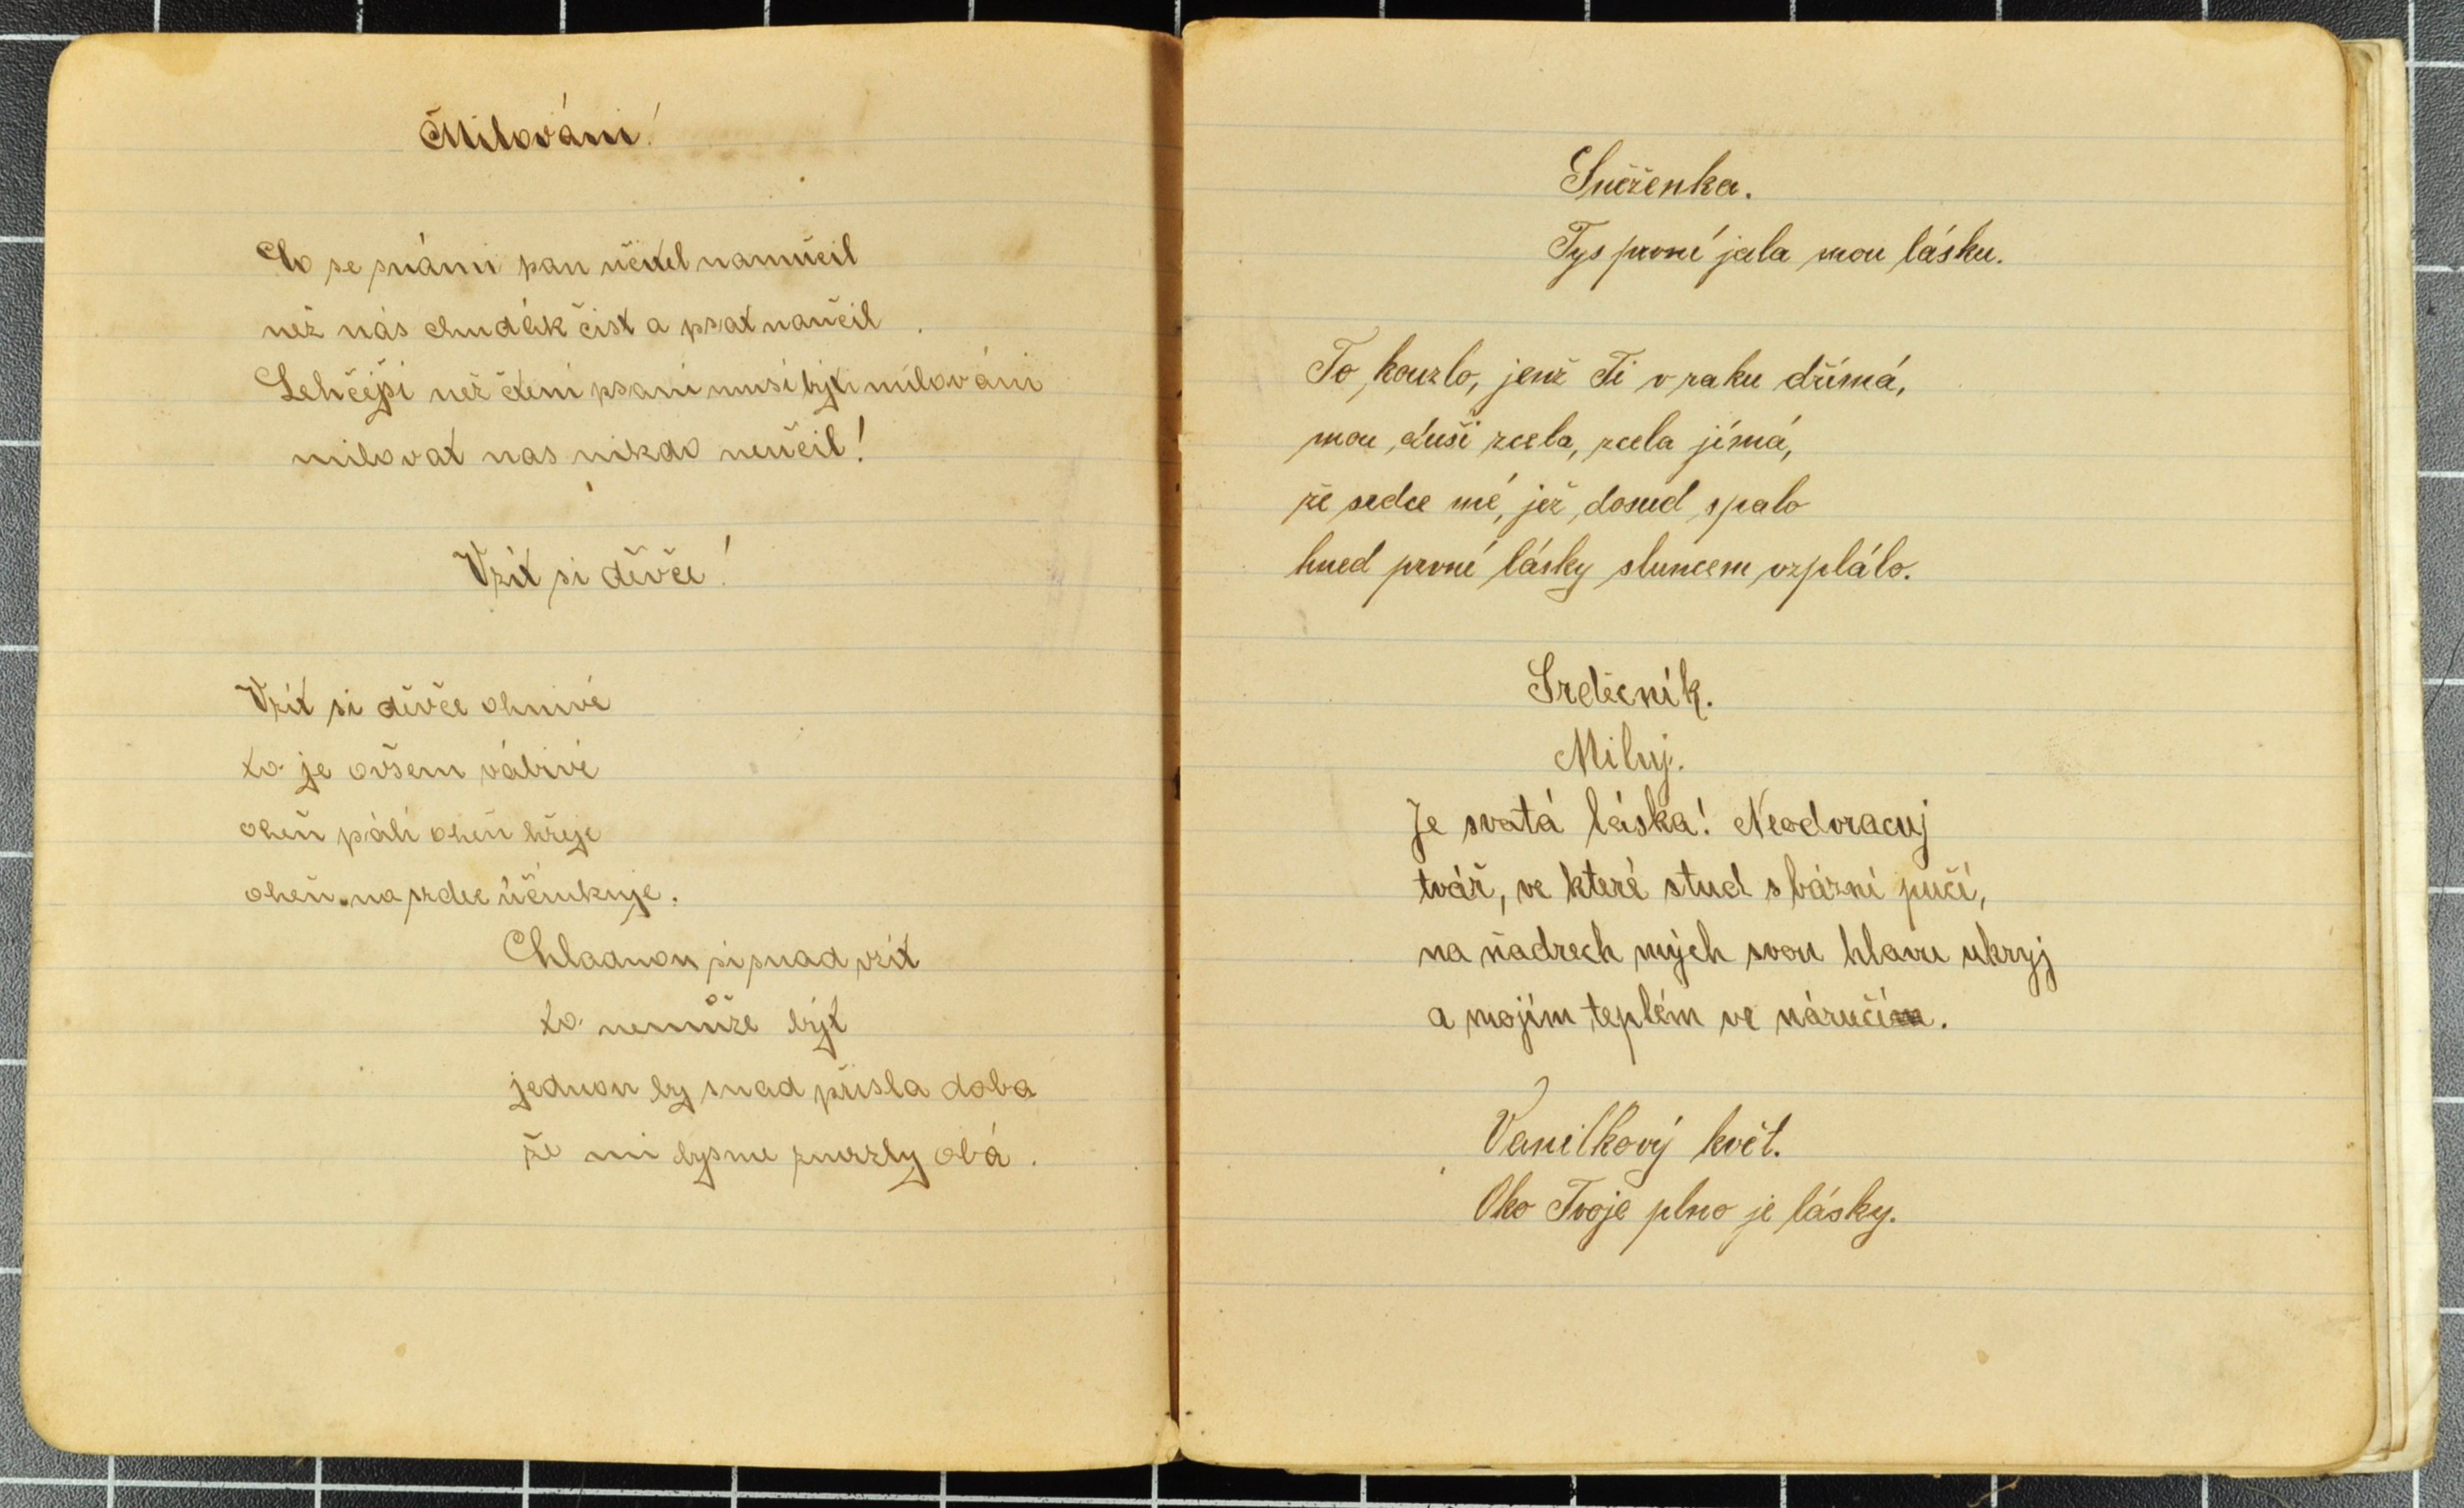 Milování!
Co se snámi pan učitel namučil
než nás chudák čist a psat naučil
Lehčejši než čteni psani musi býti milováni
milovat nas nikdo neučil!
Vzít si děvče!
Vzít si děvče ohnivé
to je ovšem vábivé
oheň páli oheň hřeje
oheň na srdce účinkuje.
Chladnou si snad vzít
to nemůže být
jednou by snad přisla doba
že mi bysme zmrzly obá.
Sněženka.
Tys první jala mou lásku.
To kouzlo, jenž Ti v zraku dřímá,
mou duši zcela, zcela jímá,
že srdce mé, jež dosud spalo
hned první lásky sluncem vzplálo.
Srdečník.
Miluj.
Je svatá láska! Neodvracuj
tvář, ve které stud s bázní pučí,
na ňadrech mých svou hlavu ukryj
a mojím teplém ve náručí.
Vanilkový květ.
Oko Tvoje plno je lásky.